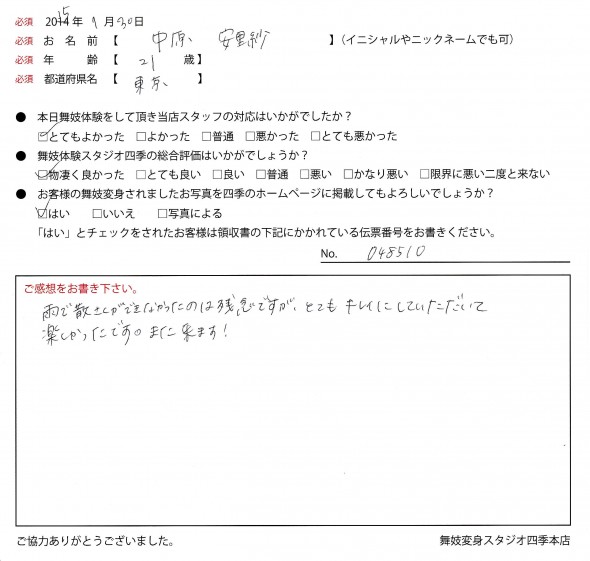 必須 2015年 9月30日
必須 お名前【 中原 安里紗 】(イニシャルやニックネームでも可)
必須 年齢【 21 歳】
必須 都道府県名【 東京 】
● 本日舞妓体験をして頂き当店スタッフの対応はいかがでしたか?
☑とてもよかった □よかった □普通 □悪かった □とても悪かった
● 舞妓体験スタジオ四季の総合評価はいかがでしょうか?
☑物凄く良かった □とても良い □良い □普通 □悪い □かなり悪い □限界に悪い二度と来ない
● お客様の舞妓変身されましたお写真を四季のホームページに掲載してもよろしいでしょうか?
☑はい □いいえ □写真による
「はい」とチェックをされたお客様は領収書の下記にかかれている伝票番号をお書きください。
No. 048510
ご感想をお書き下さい。
雨で散さくができなかったのは残念ですが、とてもキレイにしていただいて
楽しかったです。また来ます!
ご協力ありがとうございました。 舞妓変身スタジオ四季本店